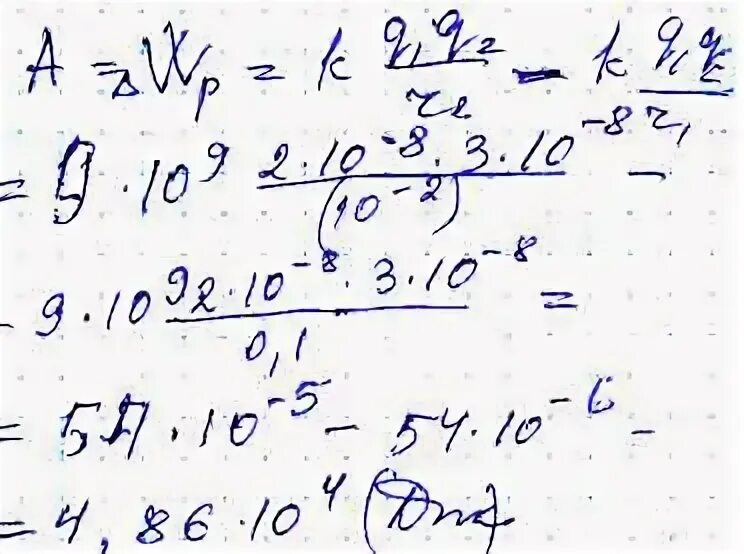 A = ΔWp = k q₁q₂/r₂ - k q₁q₂/r₁
= 9 · 10⁹ 2·10⁻⁸ · 3·10⁻⁸/(10⁻²) -
- 9·10⁹ 2·10⁻⁸ · 3·10⁻⁸/0,1 =
= 54·10⁻⁵ - 54·10⁻⁶ -
= 4,86·10⁴ (Дж)